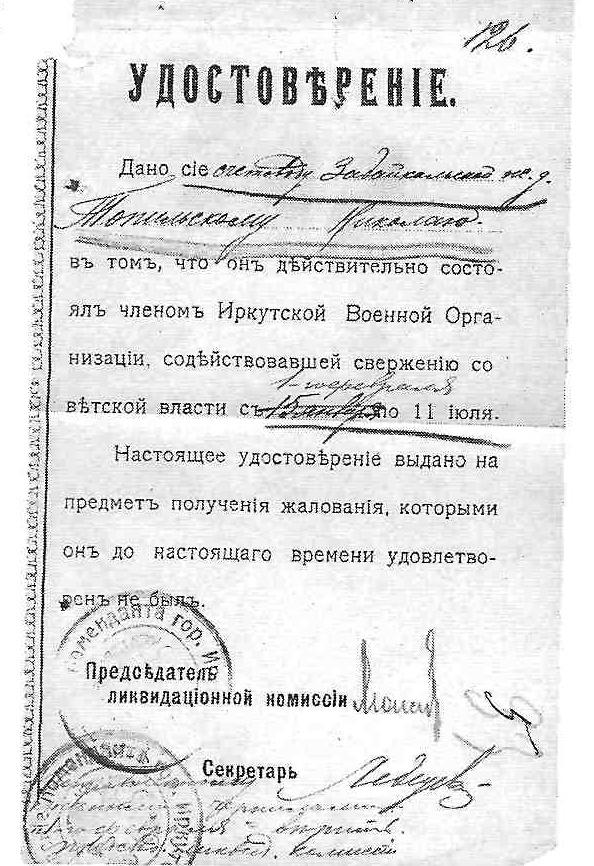 126.
УДОСТОВѢРЕНІЕ.
Дано сіе счетоводу Забайкальской ж. д.
Топильскому Николаю
въ томъ, что онъ дѣйствительно состо-
ялъ членомъ Иркутской Военной Орга-
низаціи, содѣйствовавшей сверженію со
1-го февраля
вѣтской власти съ 15 января по 11 іюля.
Настоящее удостовѣреніе выдано на
предметъ полученія жалованія, которыми
онъ до настоящаго времени удовлетво-
ренъ не былъ.
Коменданта гор. И
Предсѣдатель
ликвидаціонной комиссіи
Секретарь
Лебедев